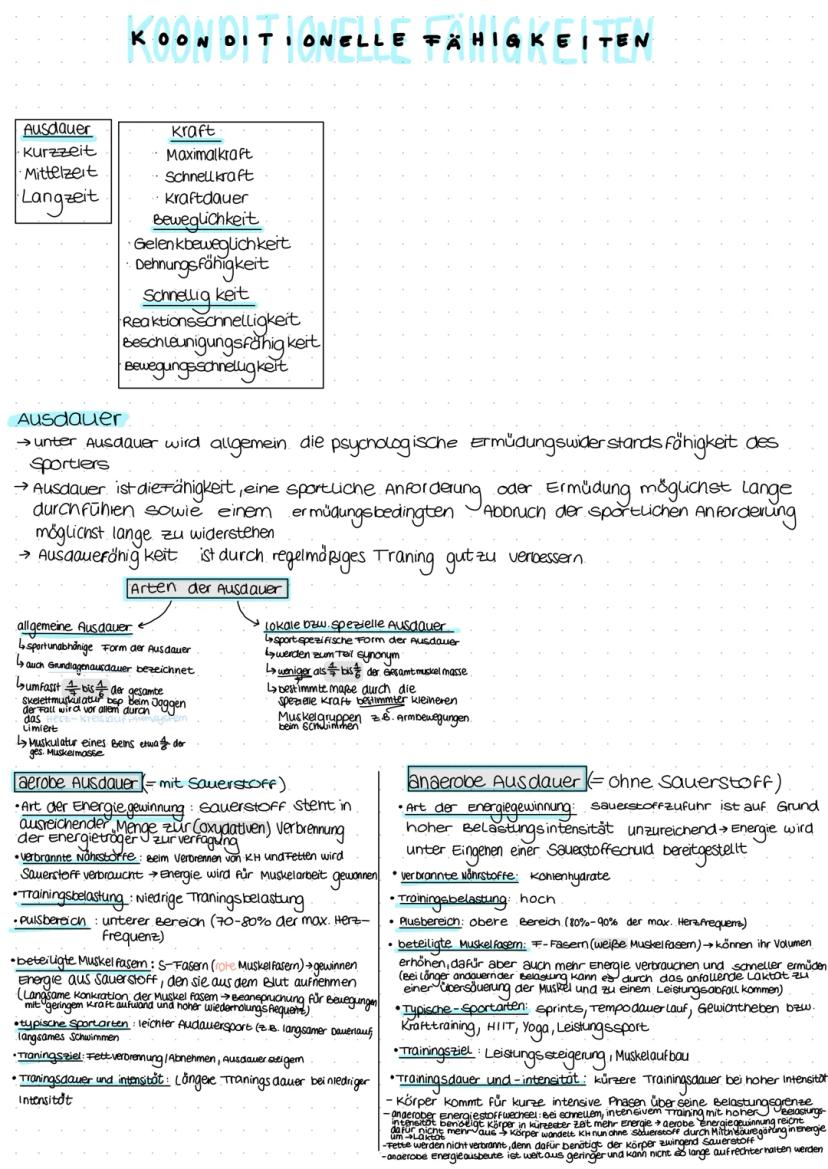 KOONDITIONELLE FÄHIGKEITEN
Ausdauer
· Kurzzeit
· Mittelzeit
Langzeit
Kraft
· Maximalkraft
· Schnellkraft
· Kraftdauer
Beweglichkeit
· Gelenkbeweglichkeit
· Dehnungsfähigkeit
Schnelligkeit
Reaktionsschnelligkeit
Beschleunigungsfähigkeit
Bewegungsschnelligkeit
Ausdauer
→ unter Ausdauer wird allgemein die psychologische Ermüdungswiderstandsfähigkeit des
Sportlers
→ Ausdauer ist die Fähigkeit, eine sportliche Anforderung oder Ermüdung möglichst lange
durchführen sowie einem ermüdungsbedingten Abbruch der sportlichen Anforderung
möglichst lange zu widerstehen
→ Ausdauefähigkeit ist durch regelmäßiges Traning gut zu verbessern
Arten der Ausdauer
allgemeine Ausdauer
↳ sportunabhänige Form der Ausdauer
↳ auch Grundlagenausdauer bezeichnet
↳ umfasst bis der gesamte
Skelettmuskulatur bsp beim Joggen
der Fall wird vor allem durch
das Herz-Kreislauf
limiert
↳ Muskulatur eines Beins etwa der
ges. Muskelmasse
lokale bzw. spezielle Ausdauer
↳ sportspezifische Form der Ausdauer
↳ werden zum Teil Synonym
↳ weniger als bis der Gesamtmuskelmasse
↳ bestimmte maße durch die
spezielle Kraft bestimmter kleineren
Muskelgruppen z.B. Armbewegungen
beim Schwimmen
aerobe Ausdauer (= mit Sauerstoff)
· Art der Energiegewinnung: Sauerstoff steht in
ausreichender Menge zur (oxydativen) Verbrennung
der Energieträger zur verfügung
· verbrannte Nährstoffe: Beim Verbrennen von KH und Fetten wird
Sauerstoff verbraucht → Energie wird für Muskelarbeit gewonnen
· Trainingsbelastung: Niedrige Traningsbelastung
· Pulsbereich: unterer Bereich (70-80% der max. Herz-
frequenz)
· beteiligte Muskelfasern: S-Fasern (rote Muskelfasern) → gewinnen
Energie aus Sauerstoff, den sie aus dem Blut aufnehmen
(Langsame Konkration der Muskelfasern → Beanspruchung für Bewegungen
mit geringem Kraftaufwand und hoher Wiederholungsfrequenz)
· typische Sportarten: leichter Audauersport (z.B. langsamer Dauerlauf,
langsames Schwimmen
· Traningsziel: Fettverbrennung/Abnehmen, Ausdauer steigern
· Traningsdauer und intensität: Längere Tranings dauer bei niedriger
Intensität
anaerobe Ausdauer (= ohne Sauerstoff)
· Art der Energiegewinnung: Sauerstoffzufuhr ist auf Grund
hoher Belastungsintensität unzureichend → Energie wird
unter Eingehen einer Sauerstoffschuld bereitgestellt
· verbrannte Nährstoffe: Kohlenhydrate
· Trainingsbelastung: hoch
· Plusbereich: obere Bereich (80%-90% der max. Herzfrequenz)
· beteiligte Muskelfasern: F-Fasern (weiße Muskelfasern) → können ihr Volumen
erhöhen, dafür aber auch mehr Energie verbrauchen und schneller ermüden
(bei länger andauernder Belastung kann es durch das anfallende Laktat zu
einer Übersäuerung der Muskel und zu einem Leistungsabfall kommen)
· Typische-Sportarten: Sprints, Tempodauerlauf, Gewichtheben bzw.
Krafttraining, HIIT, Yoga, Leistungssport
· Trainingsziel: Leistungssteigerung, Muskelaufbau
· Trainingsdauer und -intensität: kürzere Trainingsdauer bei hoher Intensität
- Körper kommt für kurze intensive Phasen über seine Belastungsgrenze
- anaerober Energiestoffwechsel: Bei schnellem, intensivem Training mit hoher Belastungs-
intensität benötigt Körper in kürzester Zeit mehr Energie → aerobe Energiegewinnung reicht
dafür nicht mehr aus → Körper wandelt KH nun ohne Sauerstoff durch Milchsäuregärung in Energie
um → Laktat
- Fette werden nicht verbrannt, denn dafür benötigt der Körper zwingend Sauerstoff
- anaerobe Energieausbeute ist weit aus geringer und kann nicht so lange aufrechterhalten werden